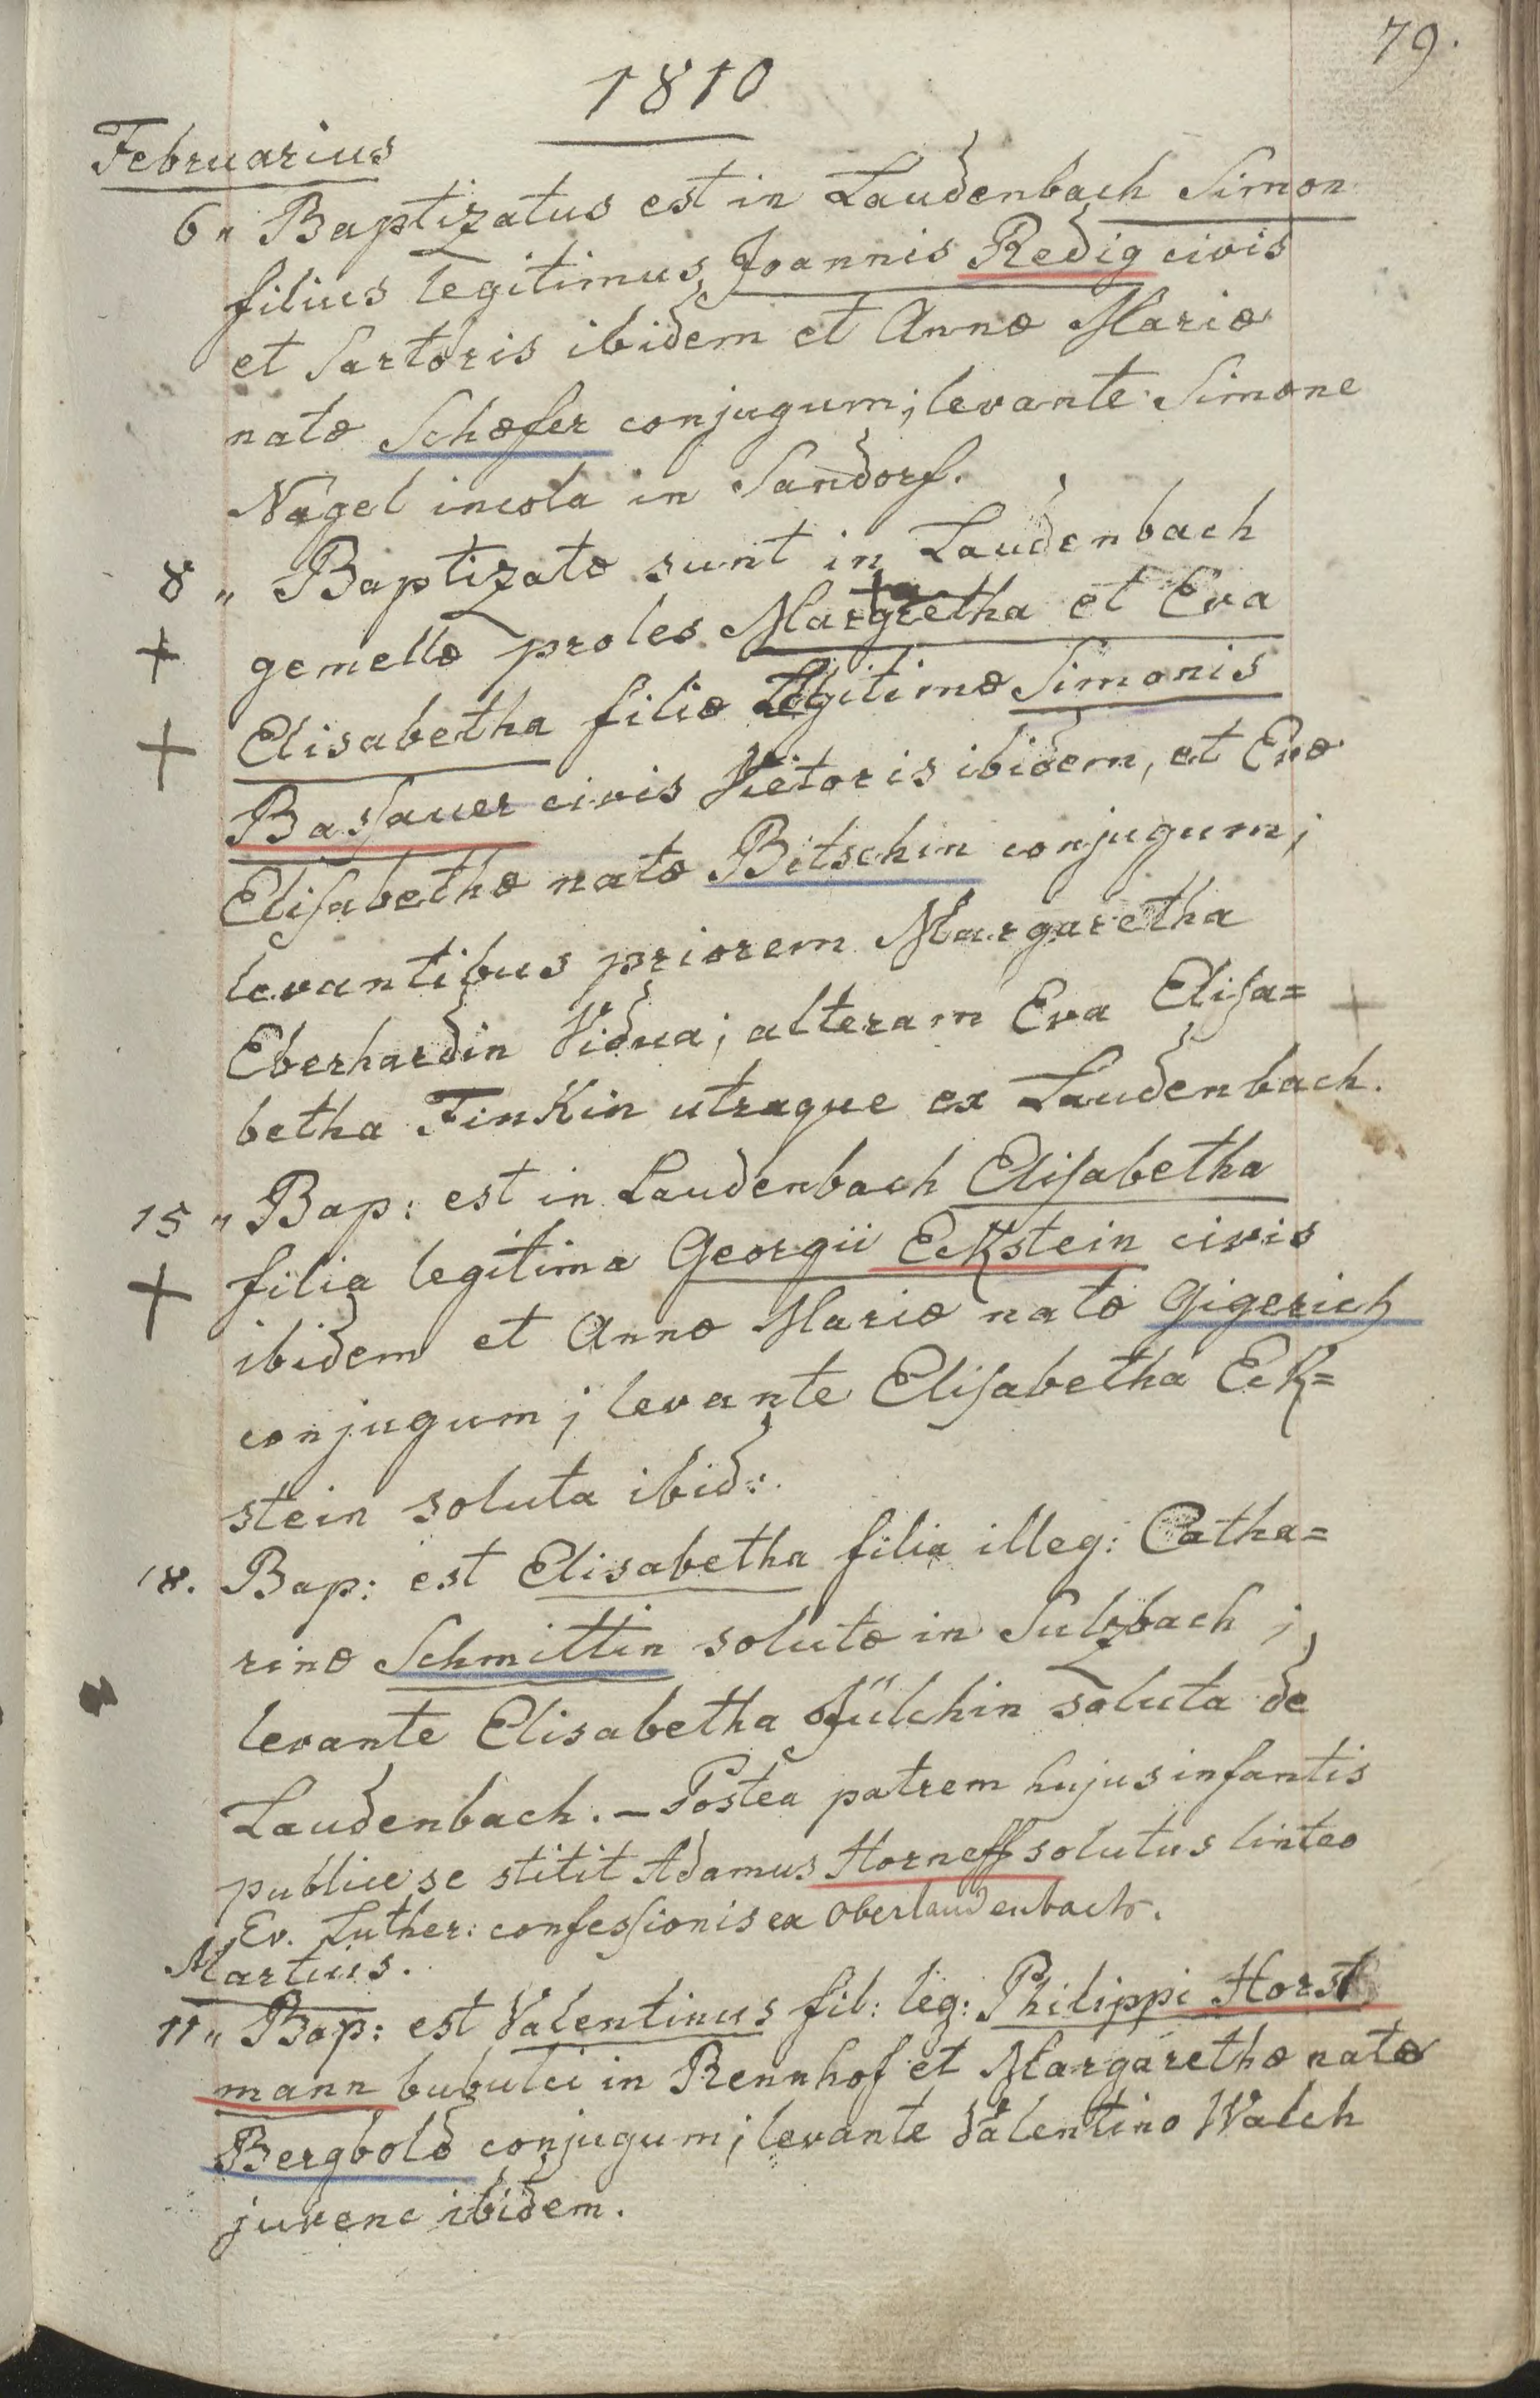 79.
1810
Februarius
6 " Baptizatus est in Laudenbach Simon
filius legitimus, Joannis Redig civis
et Sartoris ibidem et Annæ Mariæ
natæ Schæfer conjugum; levante Simone
Nagel incola in Sandorf.
8 " Baptizatæ sunt in Laudenbach
+ gemellæ proles Margretha et Eva
+ Elisabetha filiæ Legitimæ Simonis
Baſsauer civis Vietoris ibidem, et Evæ
Eliſabethæ natæ Bitschin conjugum;
levantibus priorem Margaretha
Eberhardin Vidua; alteram Eva Eliſa= +
betha Finkin utraque ex Laudenbach.
15 " Bap: est in Laudenbach Eliſabetha
+ filia legitima Georgii Eckstein civis
ibidem et Annæ Mariæ natæ Gigerich
conjugum; levante Eliſabetha Eck=
stein soluta ibid:
18. Bap: est Elisabetha filia illeg: Catha=
rinæ Schmittin solutæ in Sulzbach;
levante Elisabetha Jülchin soluta de
Laudenbach. – Postea patrem hujus infantis
publice se stitit Adamus Horneff solutus linteo
Ev. Luther: confeſsionis ex Oberlaudenbach.
Martius.
11 " Bap: est Valentinus fil: leg: Philippi Horst
mann bubulci in Rennhof et Margarethæ natæ
Bergbold conjugum; levante Valentino Walch
juvene ibidem.